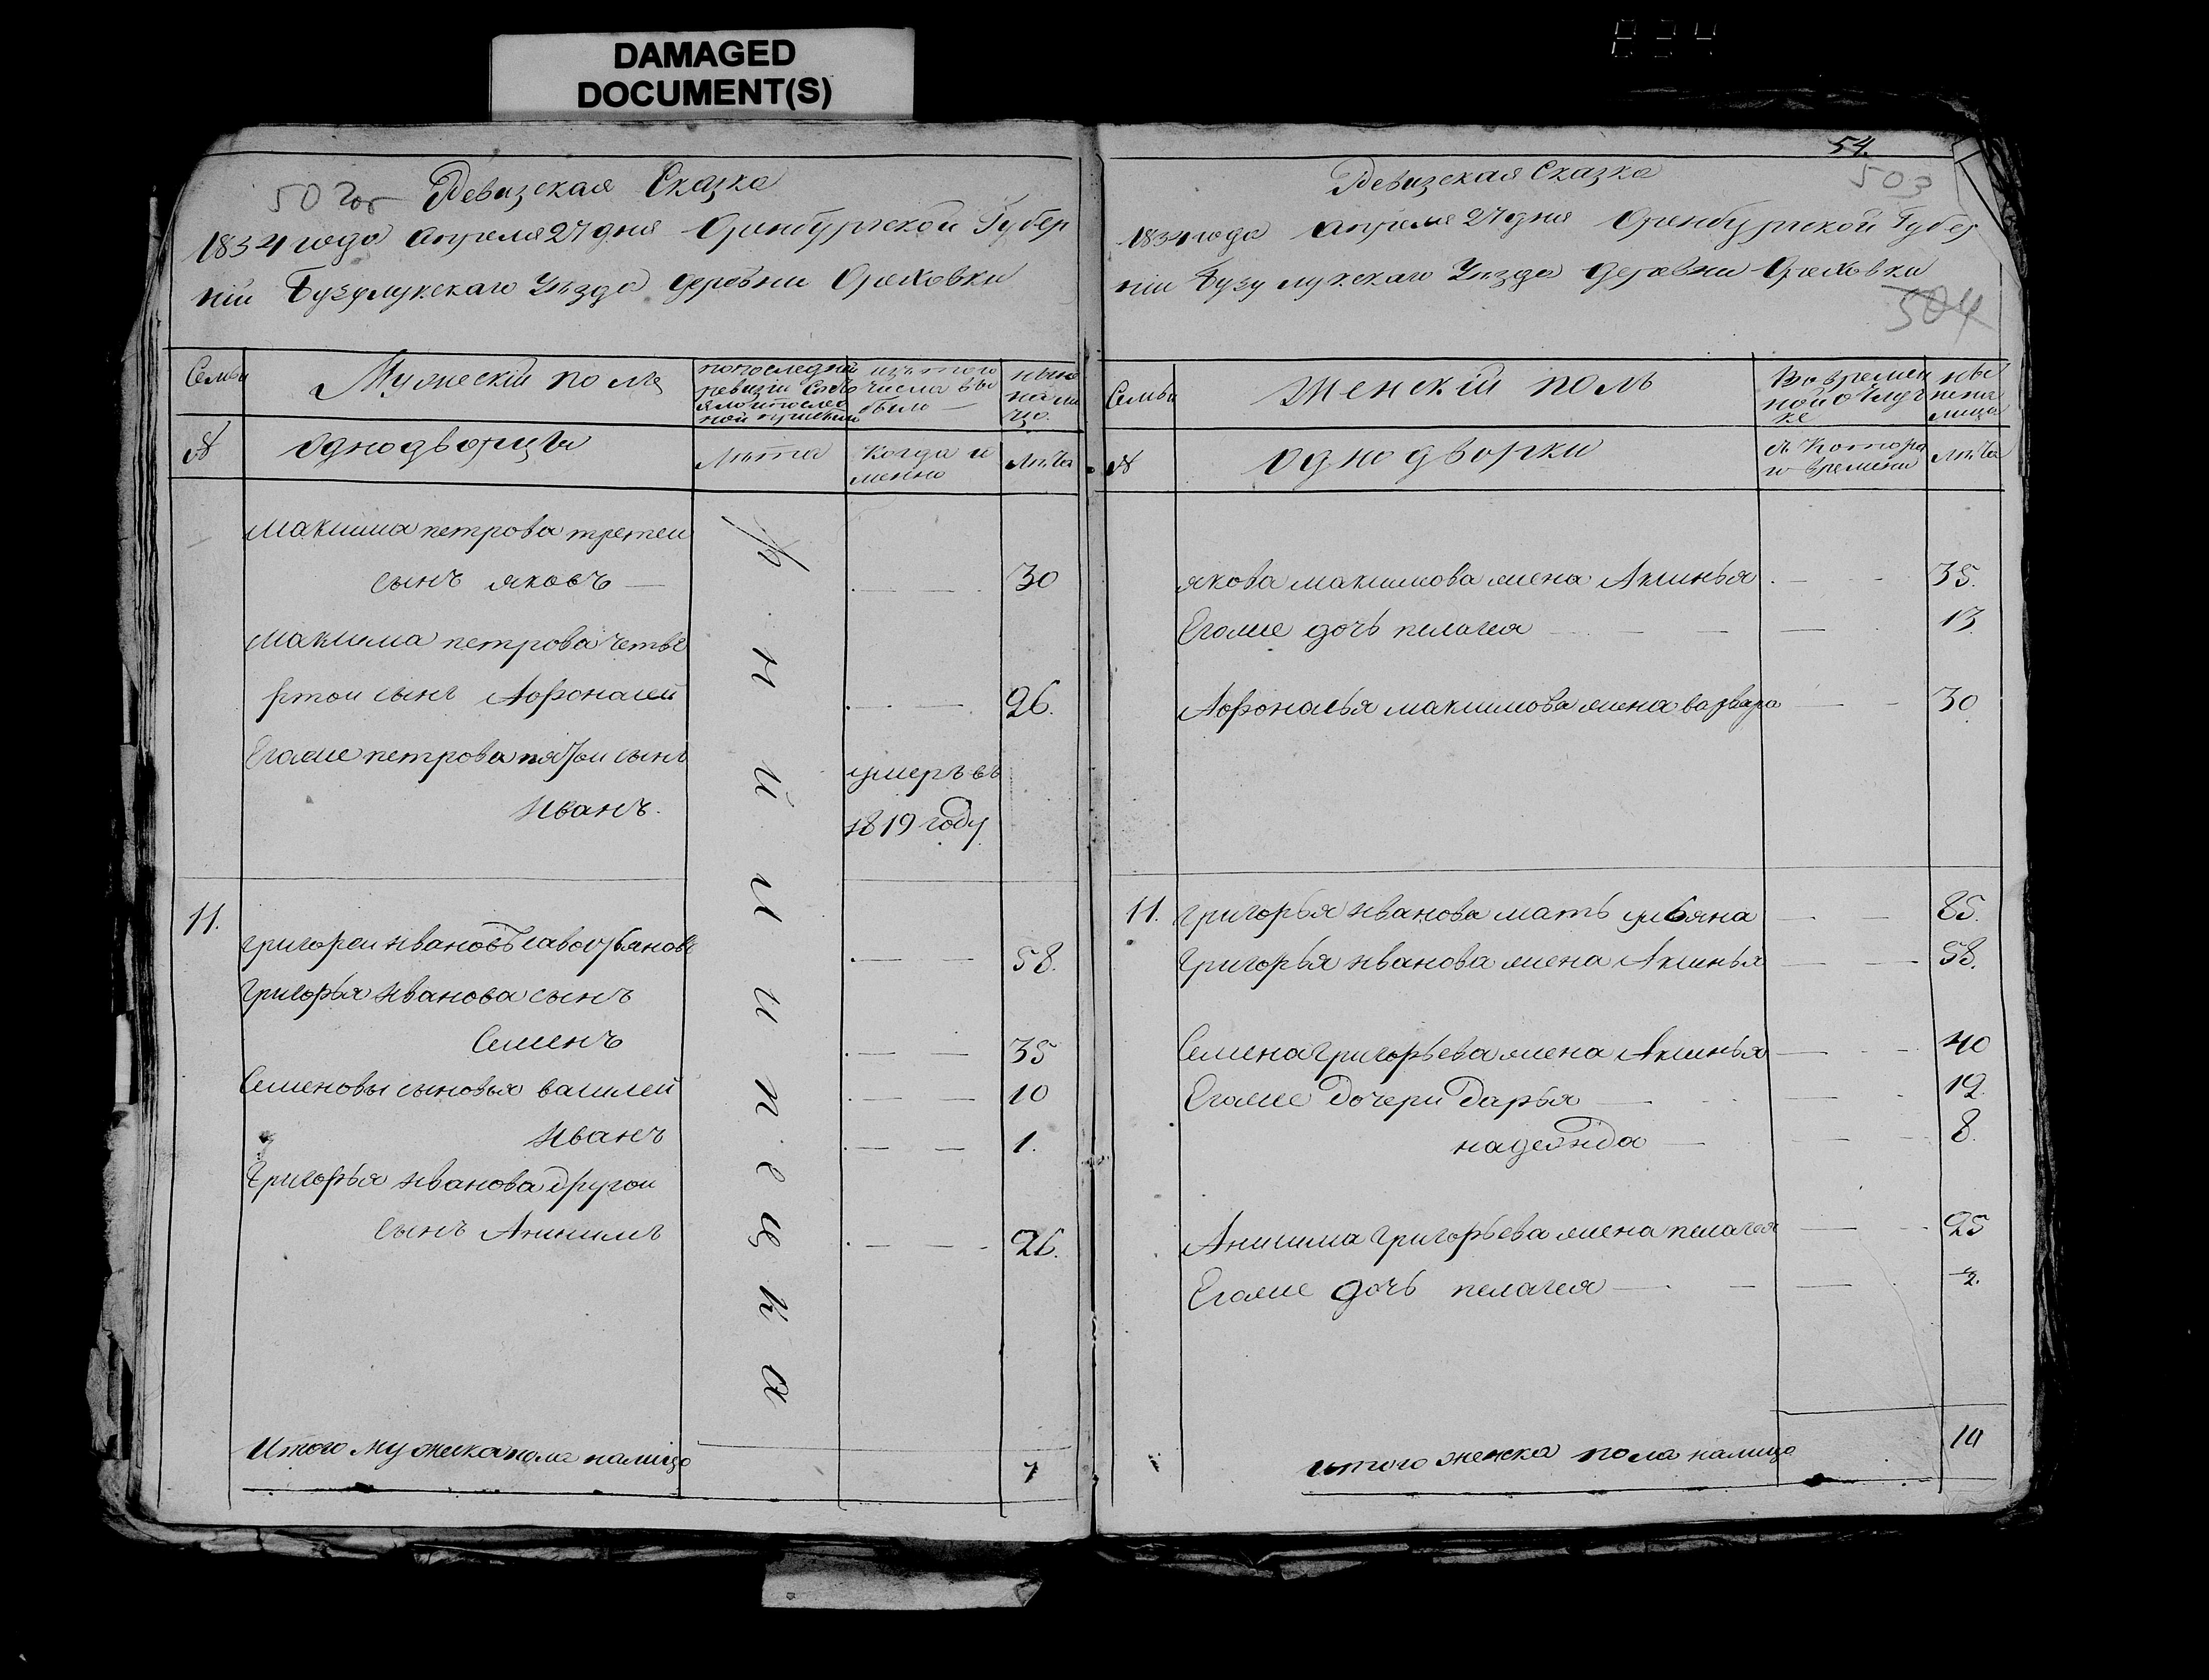 DAMAGED
DOCUMENT(S)
834
50 2об
Ревизская Сказка
1834 года апреля 27 дня Оринбургской Губер
ніи Бузулукскаго Уѣзда деровни Ореховки
Семьи
Мужескій полъ
попоследней
ревизіи Состо
яло и послѣ
изъ того
числа вы
было
ныне
на ли
цо.
№
однодворцы
Лѣта
Когда и
менно
Лѣта
Максима петрова третеи
сынъ яковъ
30
Максима петрова четве
ртои сынъ Афонасей
26.
Егоже петрова пятои сынъ
Иванъ.
умеръ въ
1819 году
11.
григореи Ивановъ
58.
Григорья Иванова сынъ
Семенъ
35
Семеновы сыновья василей
10
Иванъ
1.
Григорья Иванова другои
сынъ Анисимъ
26.
Итого мужеска пола налицо
7
54.
503
Ревизская Сказка
1834 года апреля 27 дня Оренбургской Губер
ніи Бузулукскаго Уѣзда деревни Ореховки
504
Семьи
Женскій полъ
Во времен
ной отлуч
ке
ны
не на
лицо
№
однодворки
съ Котора
го времени
Лѣта
якова максимова жена Аксинья
35.
Егоже дочь пелагея
13.
Афонасья максимова жена варвара
30
11. григорья иванова мать ульяна
85.
Григорья иванова жена Аксинья
58.
Семена григорьева жена Аксинья
40
Егоже Дочери Дарья
12.
надежда
8.
Анисима григорьева жена пелагея
25
Егоже дочь пелагея
2.
итого женска пола налицо
10